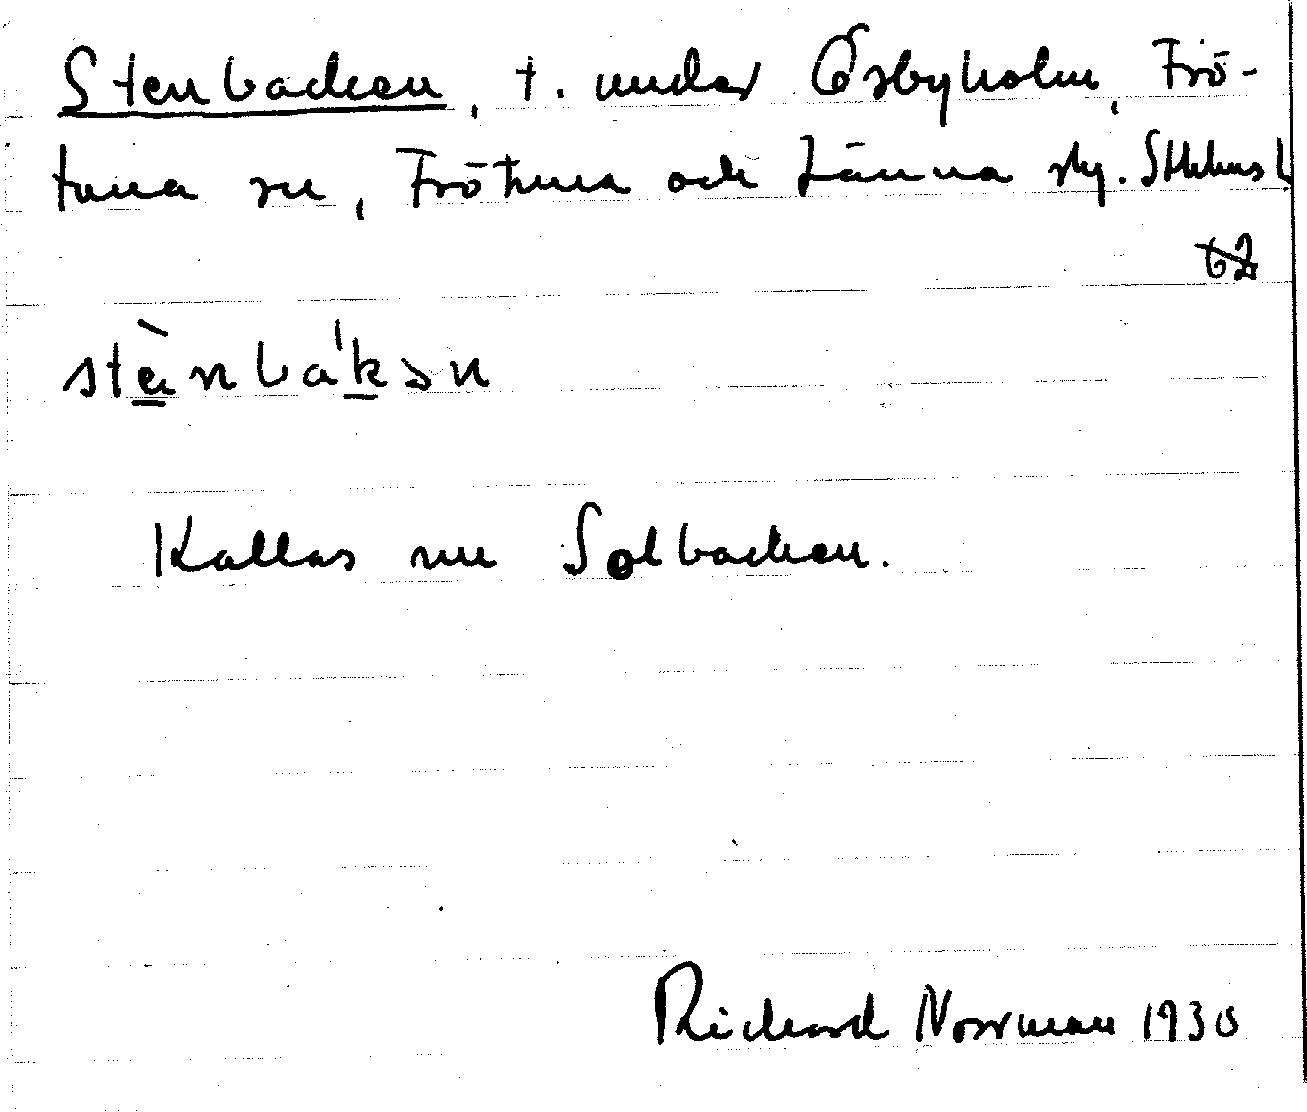 Stenbacken, t. under Ösbyholm, Frö-
tuna sn, Frötuna och Länna skg. Sthlms l
62
stè̱nbáḵən
Kallas nu Solbacken.
Richard Norrman 1930